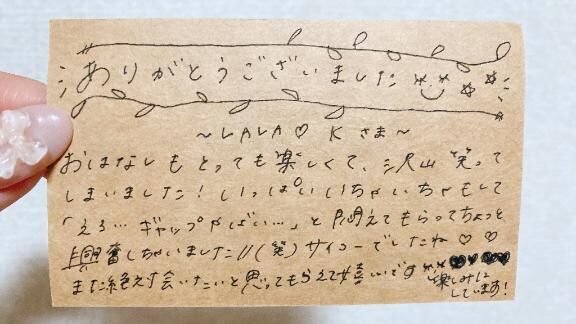 ありがとうございました
～LALA♡ K さま～
おはなしもとっても楽しくて、沢山笑って
しまいました！いっぱいいちゃいちゃもして
「えろ… ギャップやばい…」と悶えてもらってちょっと
興奮しちゃいました!!(笑)サイコーでしたね♡♡
また絶対会いたいと思ってもらえて嬉しいです
楽しみに
しています！